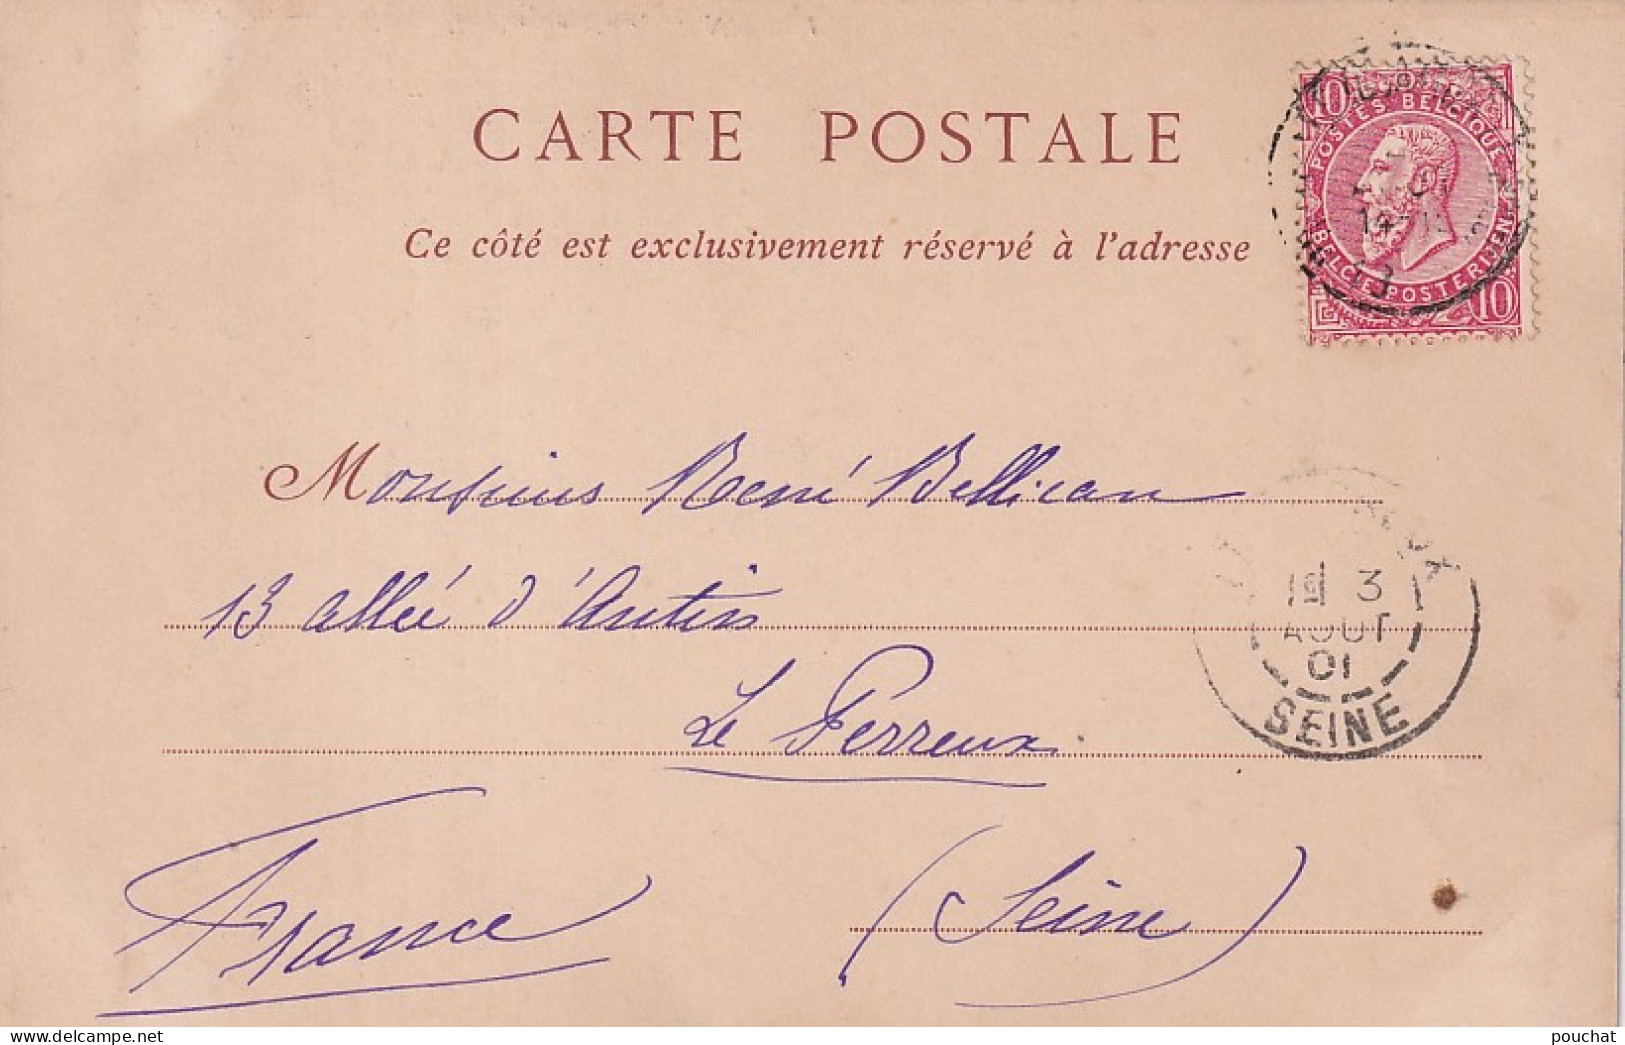 CARTE POSTALE
Ce côté est exclusivement réservé à l'adresse
10 10
POSTES BELGIQUE
BELGIE POSTERIJEN
10
Monsieur René Bellican
13 allée d'Antin
Le Perreux
France
(Seine)
3
AOUT
01
SEINE
pouchat